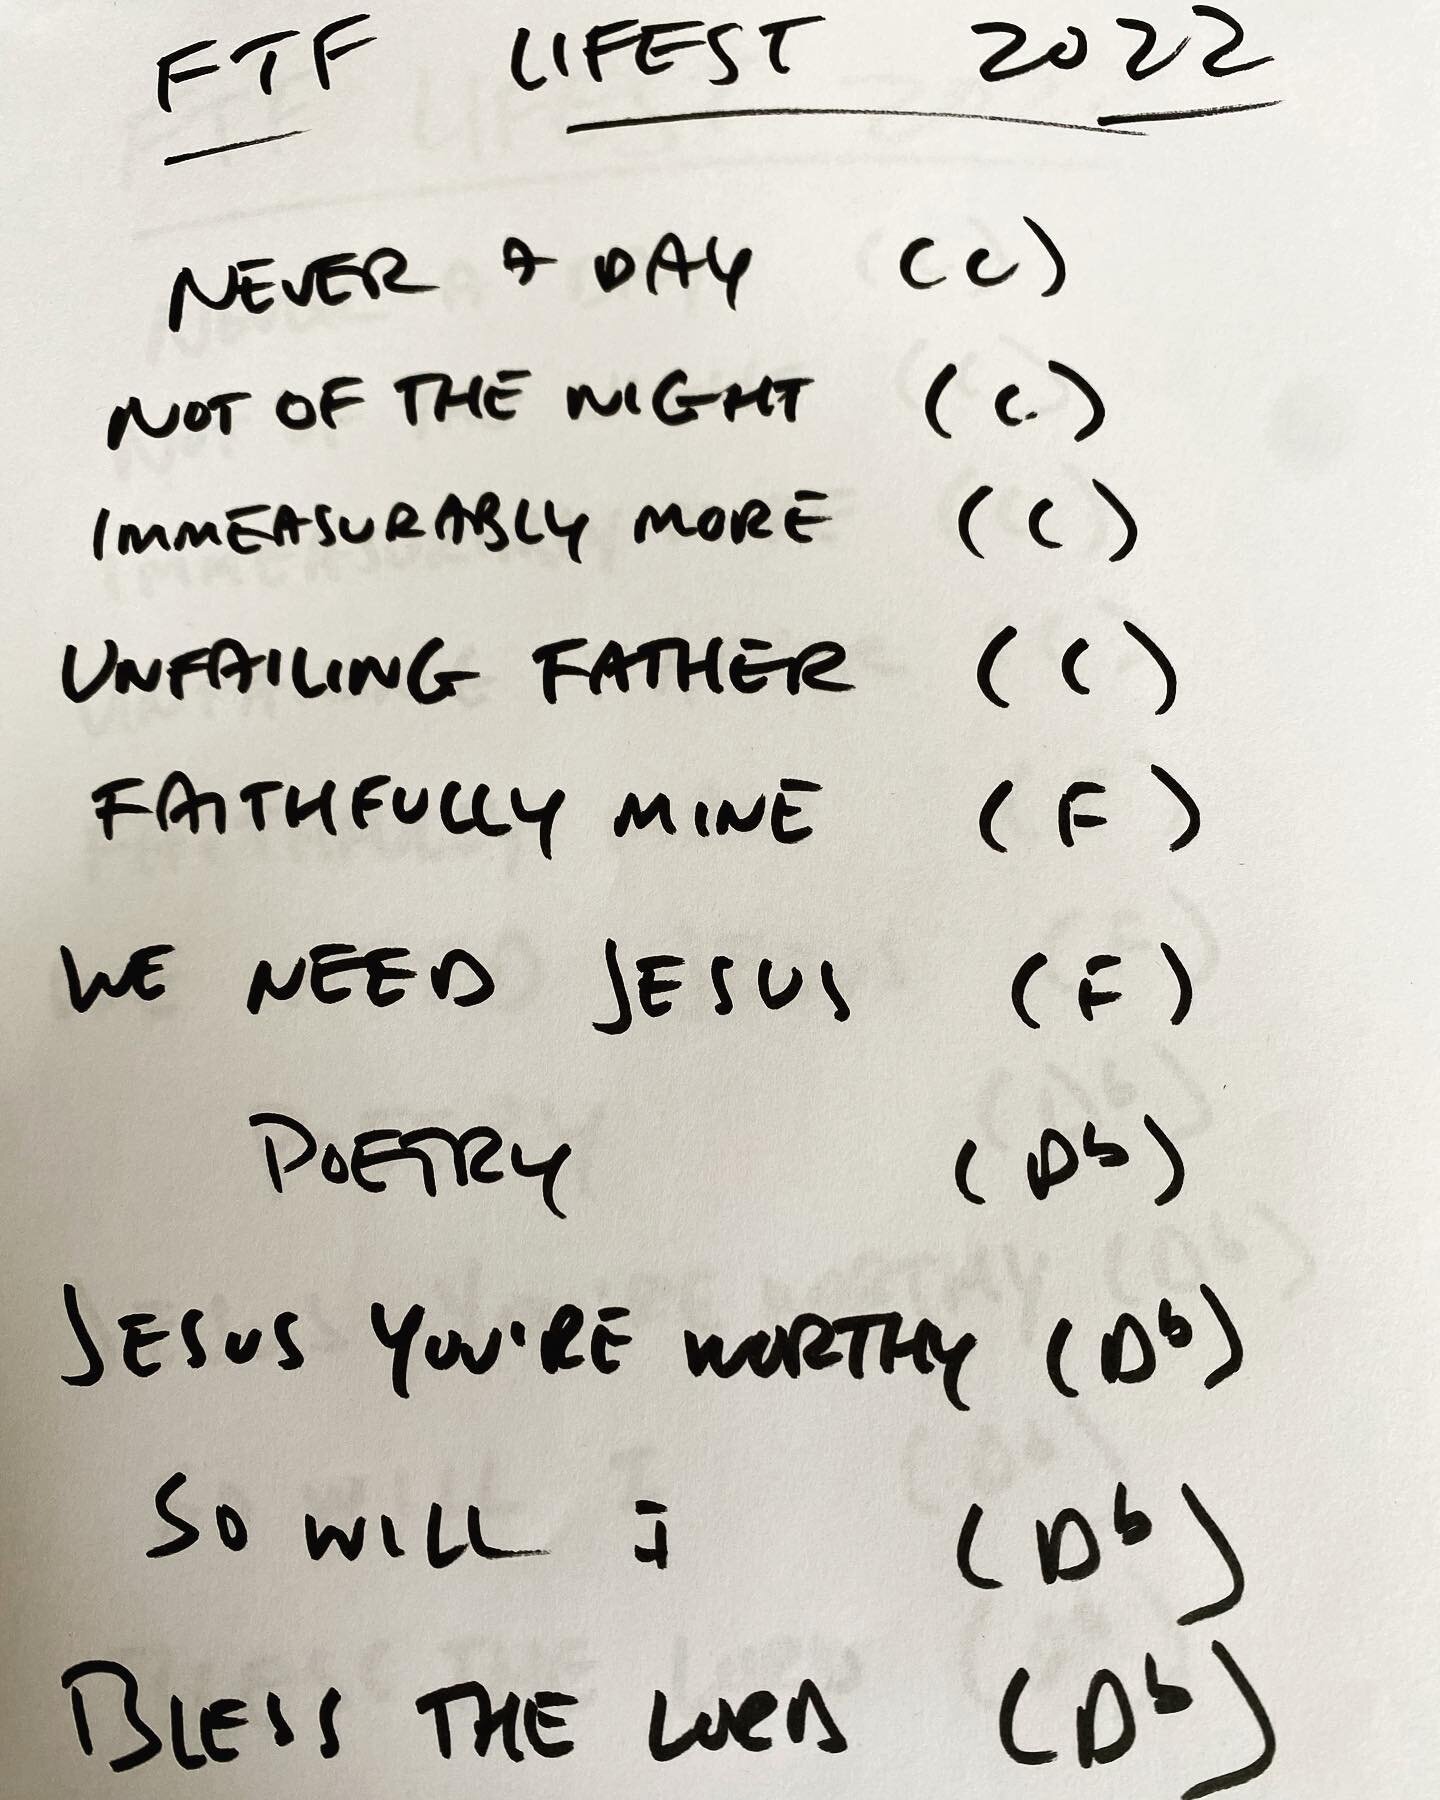 FTF LIFEST 2022
NEVER A DAY (C)
NOT OF THE NIGHT (C)
IMMEASURABLY MORE (C)
UNFAILING FATHER (C)
FAITHFULLY MINE (F)
WE NEED JESUS (F)
POETRY (Db)
JESUS YOU'RE WORTHY (Db)
SO WILL I (Db)
BLESS THE LORD (Db)